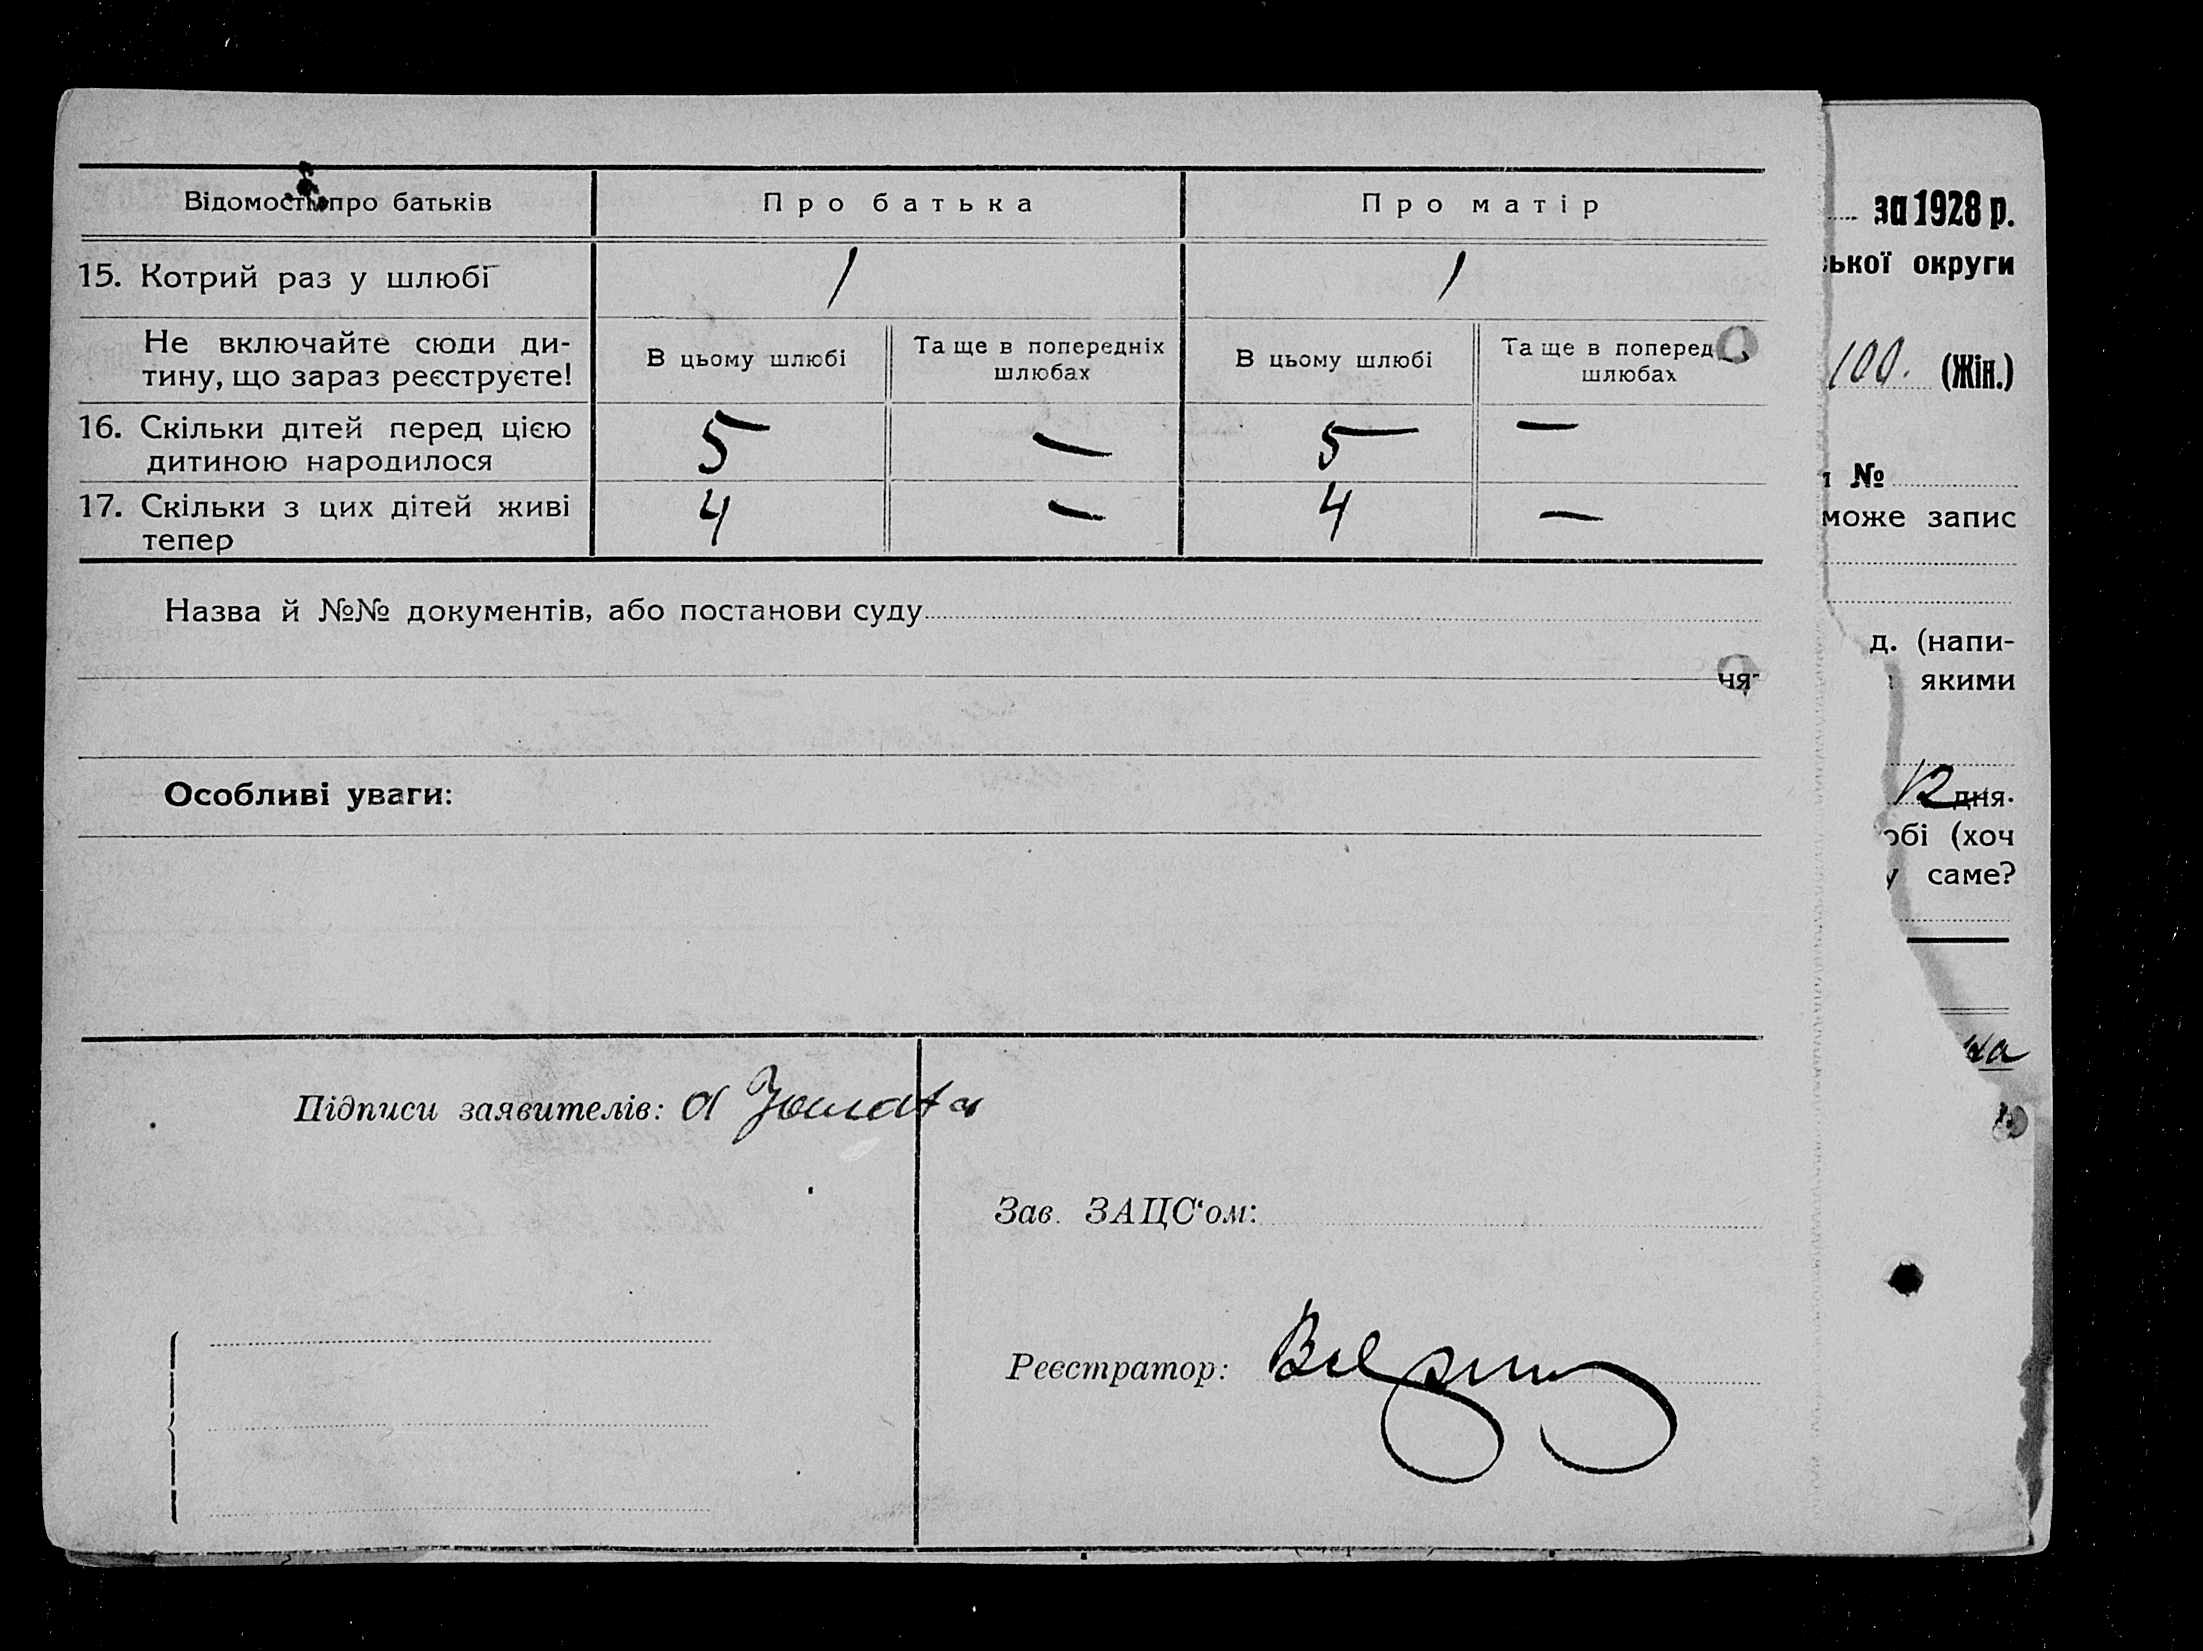 Відомості про батьків
Про батька
Про матір
15. Котрий раз у шлюбі
1
1
Не включайте сюди ди-
тину, що зараз реєструєте!
В цьому шлюбі
Та ще в попередніх
шлюбах
В цьому шлюбі
Та ще в поперед
шлюбах
16. Скільки дітей перед цією
дитиною народилося
5
—
5
—
17. Скільки з цих дітей живі
тепер
4
—
4
—
Назва й №№ документів, або постанови суду
ня
Особливі уваги:
Підписи заявителів:
Зав. ЗАЦС‘ом:
Реєстратор:
за 1928 р.
ької округи
100. (Жін.)
№
може запис
д. (напи-
якими
12 дня.
обі (хоч
у саме?
на